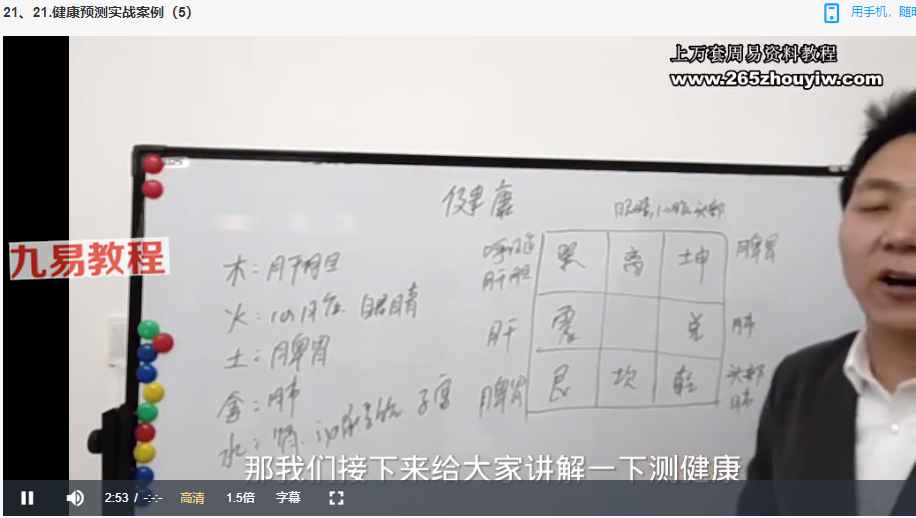 21、21.健康预测实战案例（5）
用手机，随时
上万套周易资料教程
www.265zhouyiw.com
九易教程
健康
眼睛,心脏,头部
木：肝胆
火：心脏 眼睛
土：脾胃
金：肺
水：肾 泌尿系统 子宫
呼吸道 肝胆
巽 离 坤
脾胃
肝
震 兑
肺
脾胃
艮 坎 乾
头部 肺
那我们接下来给大家讲解一下测健康
2:53 / -:-:-
高清
1.5倍
字幕